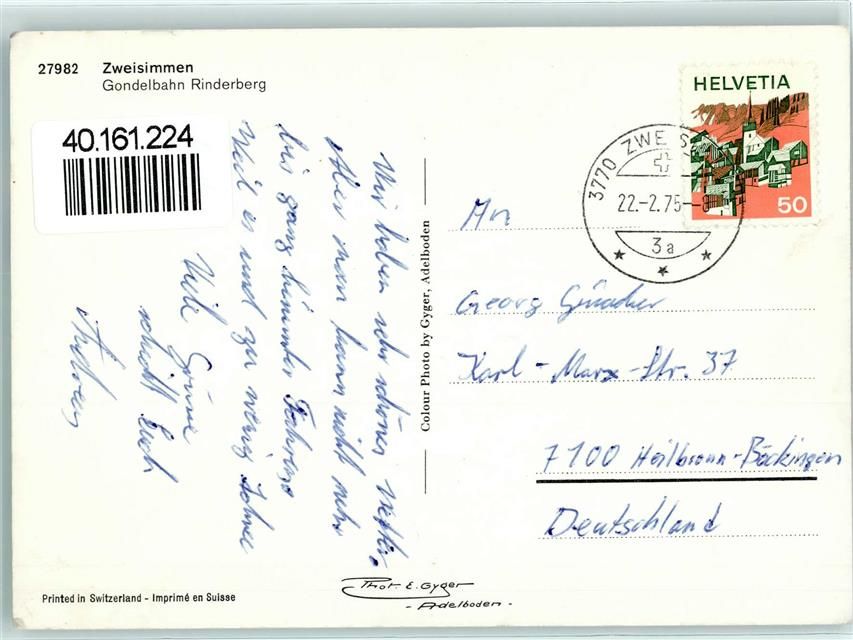 27982 Zweisimmen
Gondelbahn Rinderberg
40.161.224
Wir haben sehr schönes Wetter.
Aber man kann nicht mehr
bis ganz hinunter Fahren
Weil es und zu wenig Schnee
Viele Grüsse
schickt Euch
Andreas
Colour Photo by Gyger, Adelboden
HELVETIA
50
3770 ZWEIS
22.-2.75-8
3a
An
Georg
Karl-Marx-Str. 37
7100 Heilbronn-Böckingen
Deutschland
Phot. E. Gyger
- Adelboden -
Printed in Switzerland - Imprimé en Suisse